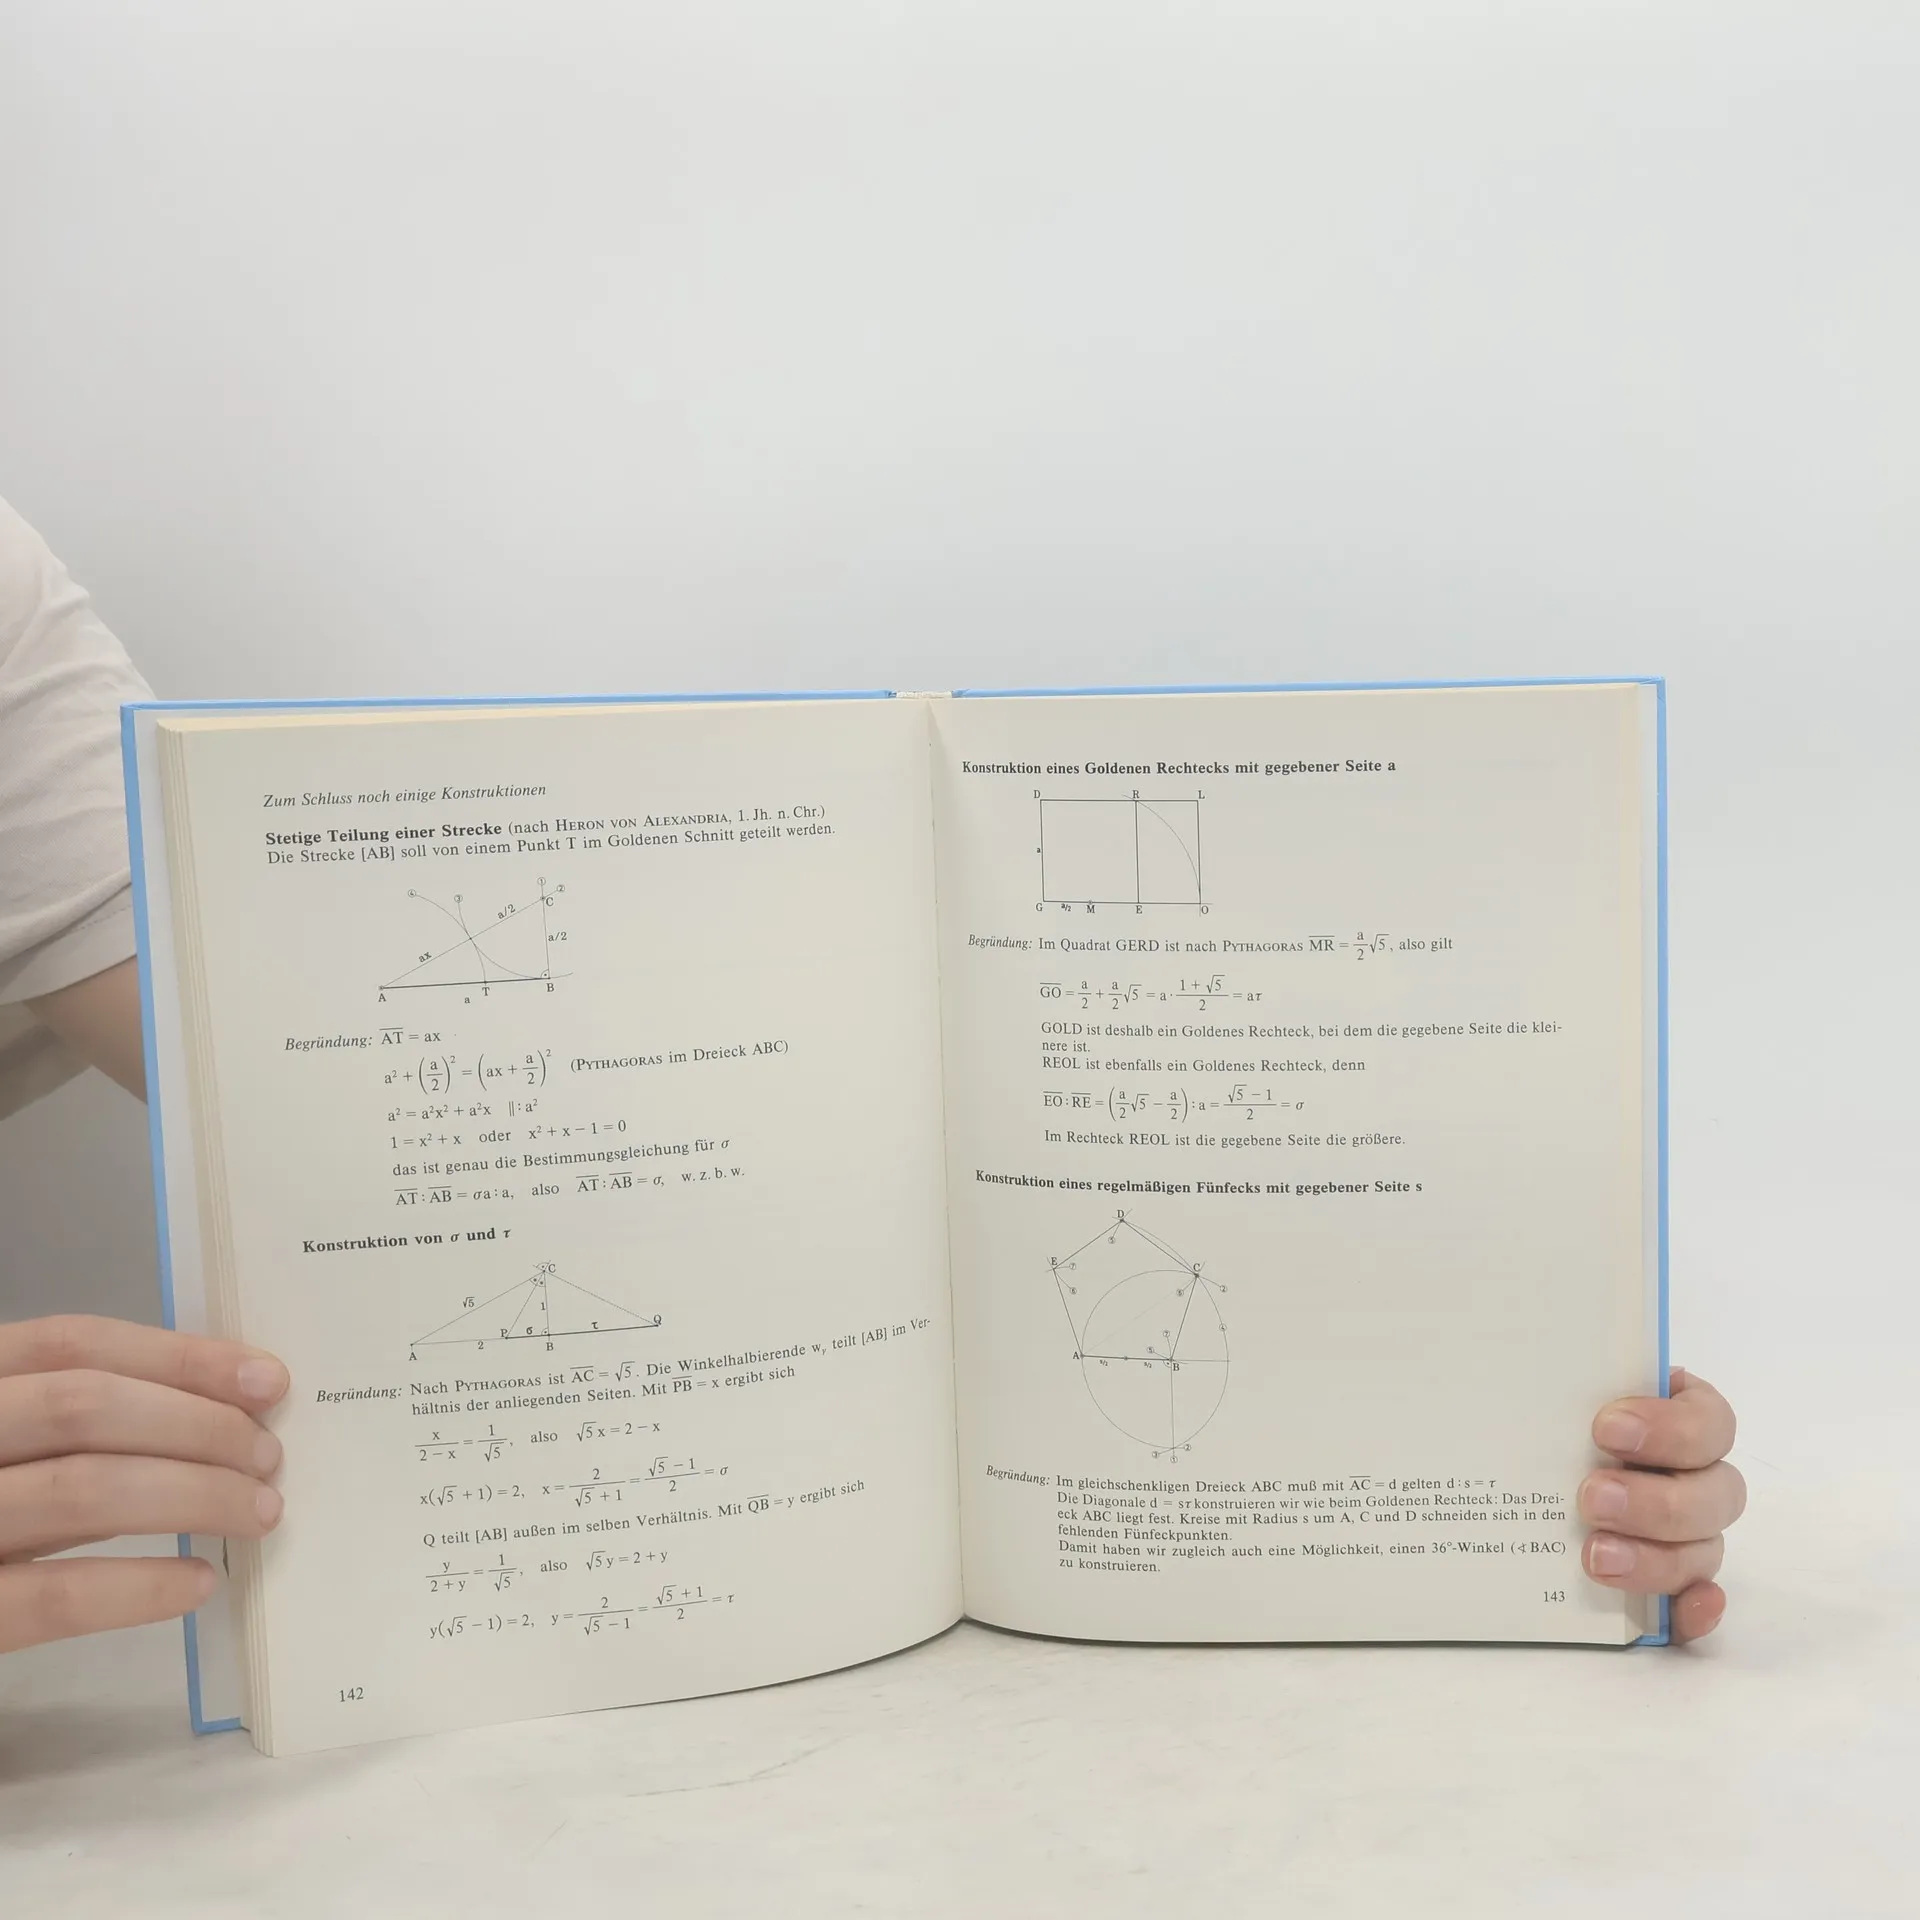 Zum Schluss noch einige Konstruktionen
Stetige Teilung einer Strecke (nach HERON VON ALEXANDRIA, 1. Jh. n. Chr.)
Die Strecke [AB] soll von einem Punkt T im Goldenen Schnitt geteilt werden.
④ ③ ① ②
C
a/2
a/2
ax
A a T B
Begründung: A̅T̅ = ax
a² + (a/2)² = (ax + a/2)² (PYTHAGORAS im Dreieck ABC)
a² = a²x² + a²x ||: a²
1 = x² + x oder x² + x − 1 = 0
das ist genau die Bestimmungsgleichung für σ
A̅T̅ : A̅B̅ = σa : a, also A̅T̅ : A̅B̅ = σ, w. z. b. w.
Konstruktion von σ und τ
C
√5 1
P σ τ Q
A 2 B
Begründung: Nach PYTHAGORAS ist A̅C̅ = √5. Die Winkelhalbierende wᵧ teilt [AB] im Ver-
hältnis der anliegenden Seiten. Mit P̅B̅ = x ergibt sich
x/(2 − x) = 1/√5, also √5 x = 2 − x
x(√5 + 1) = 2, x = 2/(√5 + 1) = (√5 − 1)/2 = σ
Q teilt [AB] außen im selben Verhältnis. Mit Q̅B̅ = y ergibt sich
y/(2 + y) = 1/√5, also √5 y = 2 + y
y(√5 − 1) = 2, y = 2/(√5 − 1) = (√5 + 1)/2 = τ
142
Konstruktion eines Goldenen Rechtecks mit gegebener Seite a
D R L
a
G a/2 M E O
Begründung: Im Quadrat GERD ist nach PYTHAGORAS M̅R̅ = a/2 √5, also gilt
G̅O̅ = a/2 + a/2 √5 = a · (1 + √5)/2 = aτ
GOLD ist deshalb ein Goldenes Rechteck, bei dem die gegebene Seite die klei-
nere ist.
REOL ist ebenfalls ein Goldenes Rechteck, denn
E̅O̅ : R̅E̅ = (a/2 √5 − a/2) : a = (√5 − 1)/2 = σ
Im Rechteck REOL ist die gegebene Seite die größere.
Konstruktion eines regelmäßigen Fünfecks mit gegebener Seite s
D
E C
②
④
A s/2 s/2 B
③ ②
①
Begründung: Im gleichschenkligen Dreieck ABC muß mit A̅C̅ = d gelten d : s = τ
Die Diagonale d = sτ konstruieren wir wie beim Goldenen Rechteck: Das Drei-
eck ABC liegt fest. Kreise mit Radius s um A, C und D schneiden sich in den
fehlenden Fünfeckpunkten.
Damit haben wir zugleich auch eine Möglichkeit, einen 36°-Winkel (∢ BAC)
zu konstruieren.
143